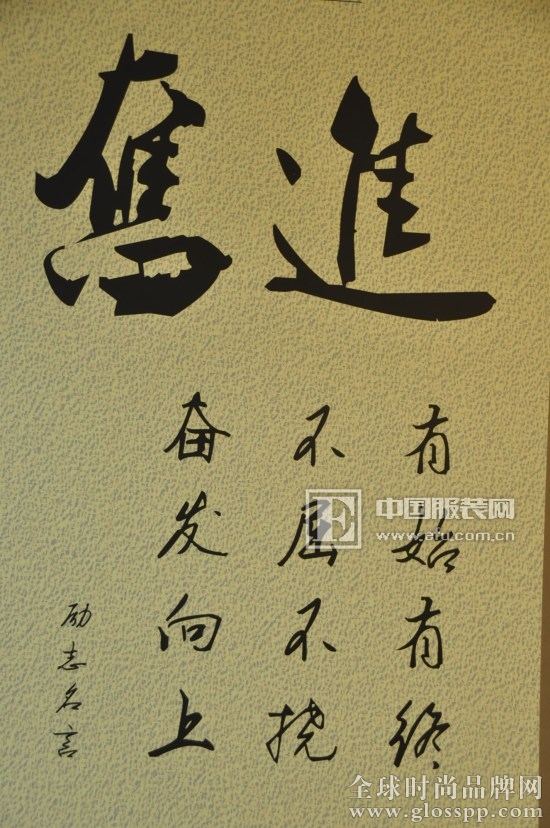 奮進
有始有终
不屈不挠
奋发向上
励志名言
E 中国服装网
www.efu.com.cn
全球时尚品牌网
www.glosspp.com